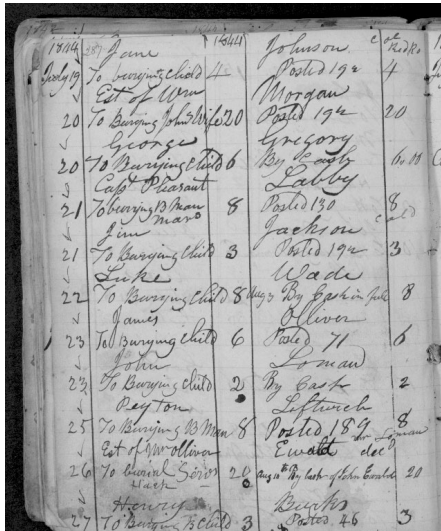 1844 Jane 1844 Johnson Cold
July 19 To burying child 4 Posted 192 4
Est of Wm Morgan
20 To Burying John's Wife 20 Posted 192 20
George Gregory
20 To Burying Child 6 By Cash 6.00
Capt Pleasant Labby
21 To burying B Man 8 Posted 130 8
Jim Jackson Cold
21 To Burying Child 3 Posted 192 3
Luke Wade
22 To Burying Child 8 Aug 3 By Cash in full 8
James Olliver
23 To Burying Child 6 Posted 71 6
John Loman
23 To Burying child 2 By Cash 2
Peyton Leftwich
25 To Burying B Man 8 Posted 189 8
Est of Mr Olliver Ewald decd
26 To burial 20 Aug 10 By Cash of John Ewald 20
Henry Burks
27 To Burying B child 3 Posted 46 3